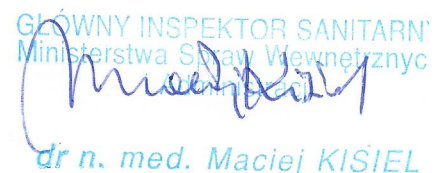 GŁÓWNY INSPEKTOR SANITARN
Ministerstwa Spraw Wewnętrznyc
i Administracji
dr n. med. Maciej KISIEL